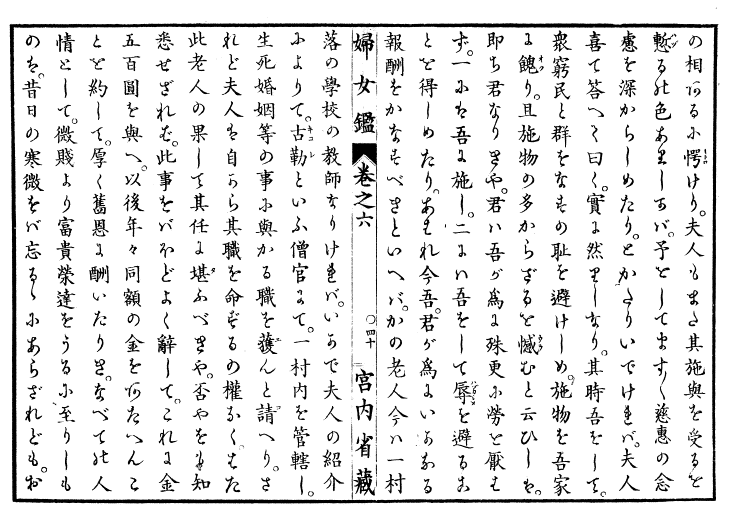 の相あるに愕けり。夫人もまた其施與を受ると
慙るの色ありしかバ。予をしてます〱慈惠の念
慮を深からしめたり。とかたりいでければ。夫人
喜て答へて曰く。實に然りしなり。其時吾をして。
衆窮民と群をなすの耻を避けしめ。施物を吾家
に餽り。且施物の多からざるを憾むと云ひしも。
即ち君なりきや。君ハ吾が爲に殊更に勞を厭は
ず。一にハ吾に施し。二にハ吾をして辱を避るこ
とを得しめたり。あはれ今吾。君が爲にいかなる
報酬をかなすべきといへバ。かの老人今ハ一村
婦女鑑 卷之六 〇四十 宮内省藏
落の學校の教師なりければ。いかで夫人の紹介
によりて。古勒といふ僧官にて。一村内を管轄し。
生死婚姻等の事に與かる職を獲んと請へり。さ
れど夫人は自から其職を命ずるの權なく。はた
此老人の果して其任に堪ふべきや。否やをも知
悉せざれば。此事をバほどよく辭して。これに金
五百圓を與へ。以後年々同額の金をあたへんこ
とを約して。厚く舊恩に酬いたりき。なべての人
情として。微賤より富貴榮達をうるに至りしも
のは。昔日の寒微をバ忘るゝにあらざれども。お